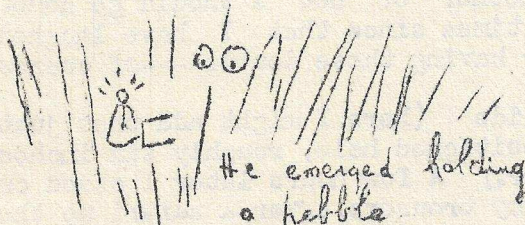 He emerged holding
a pebble